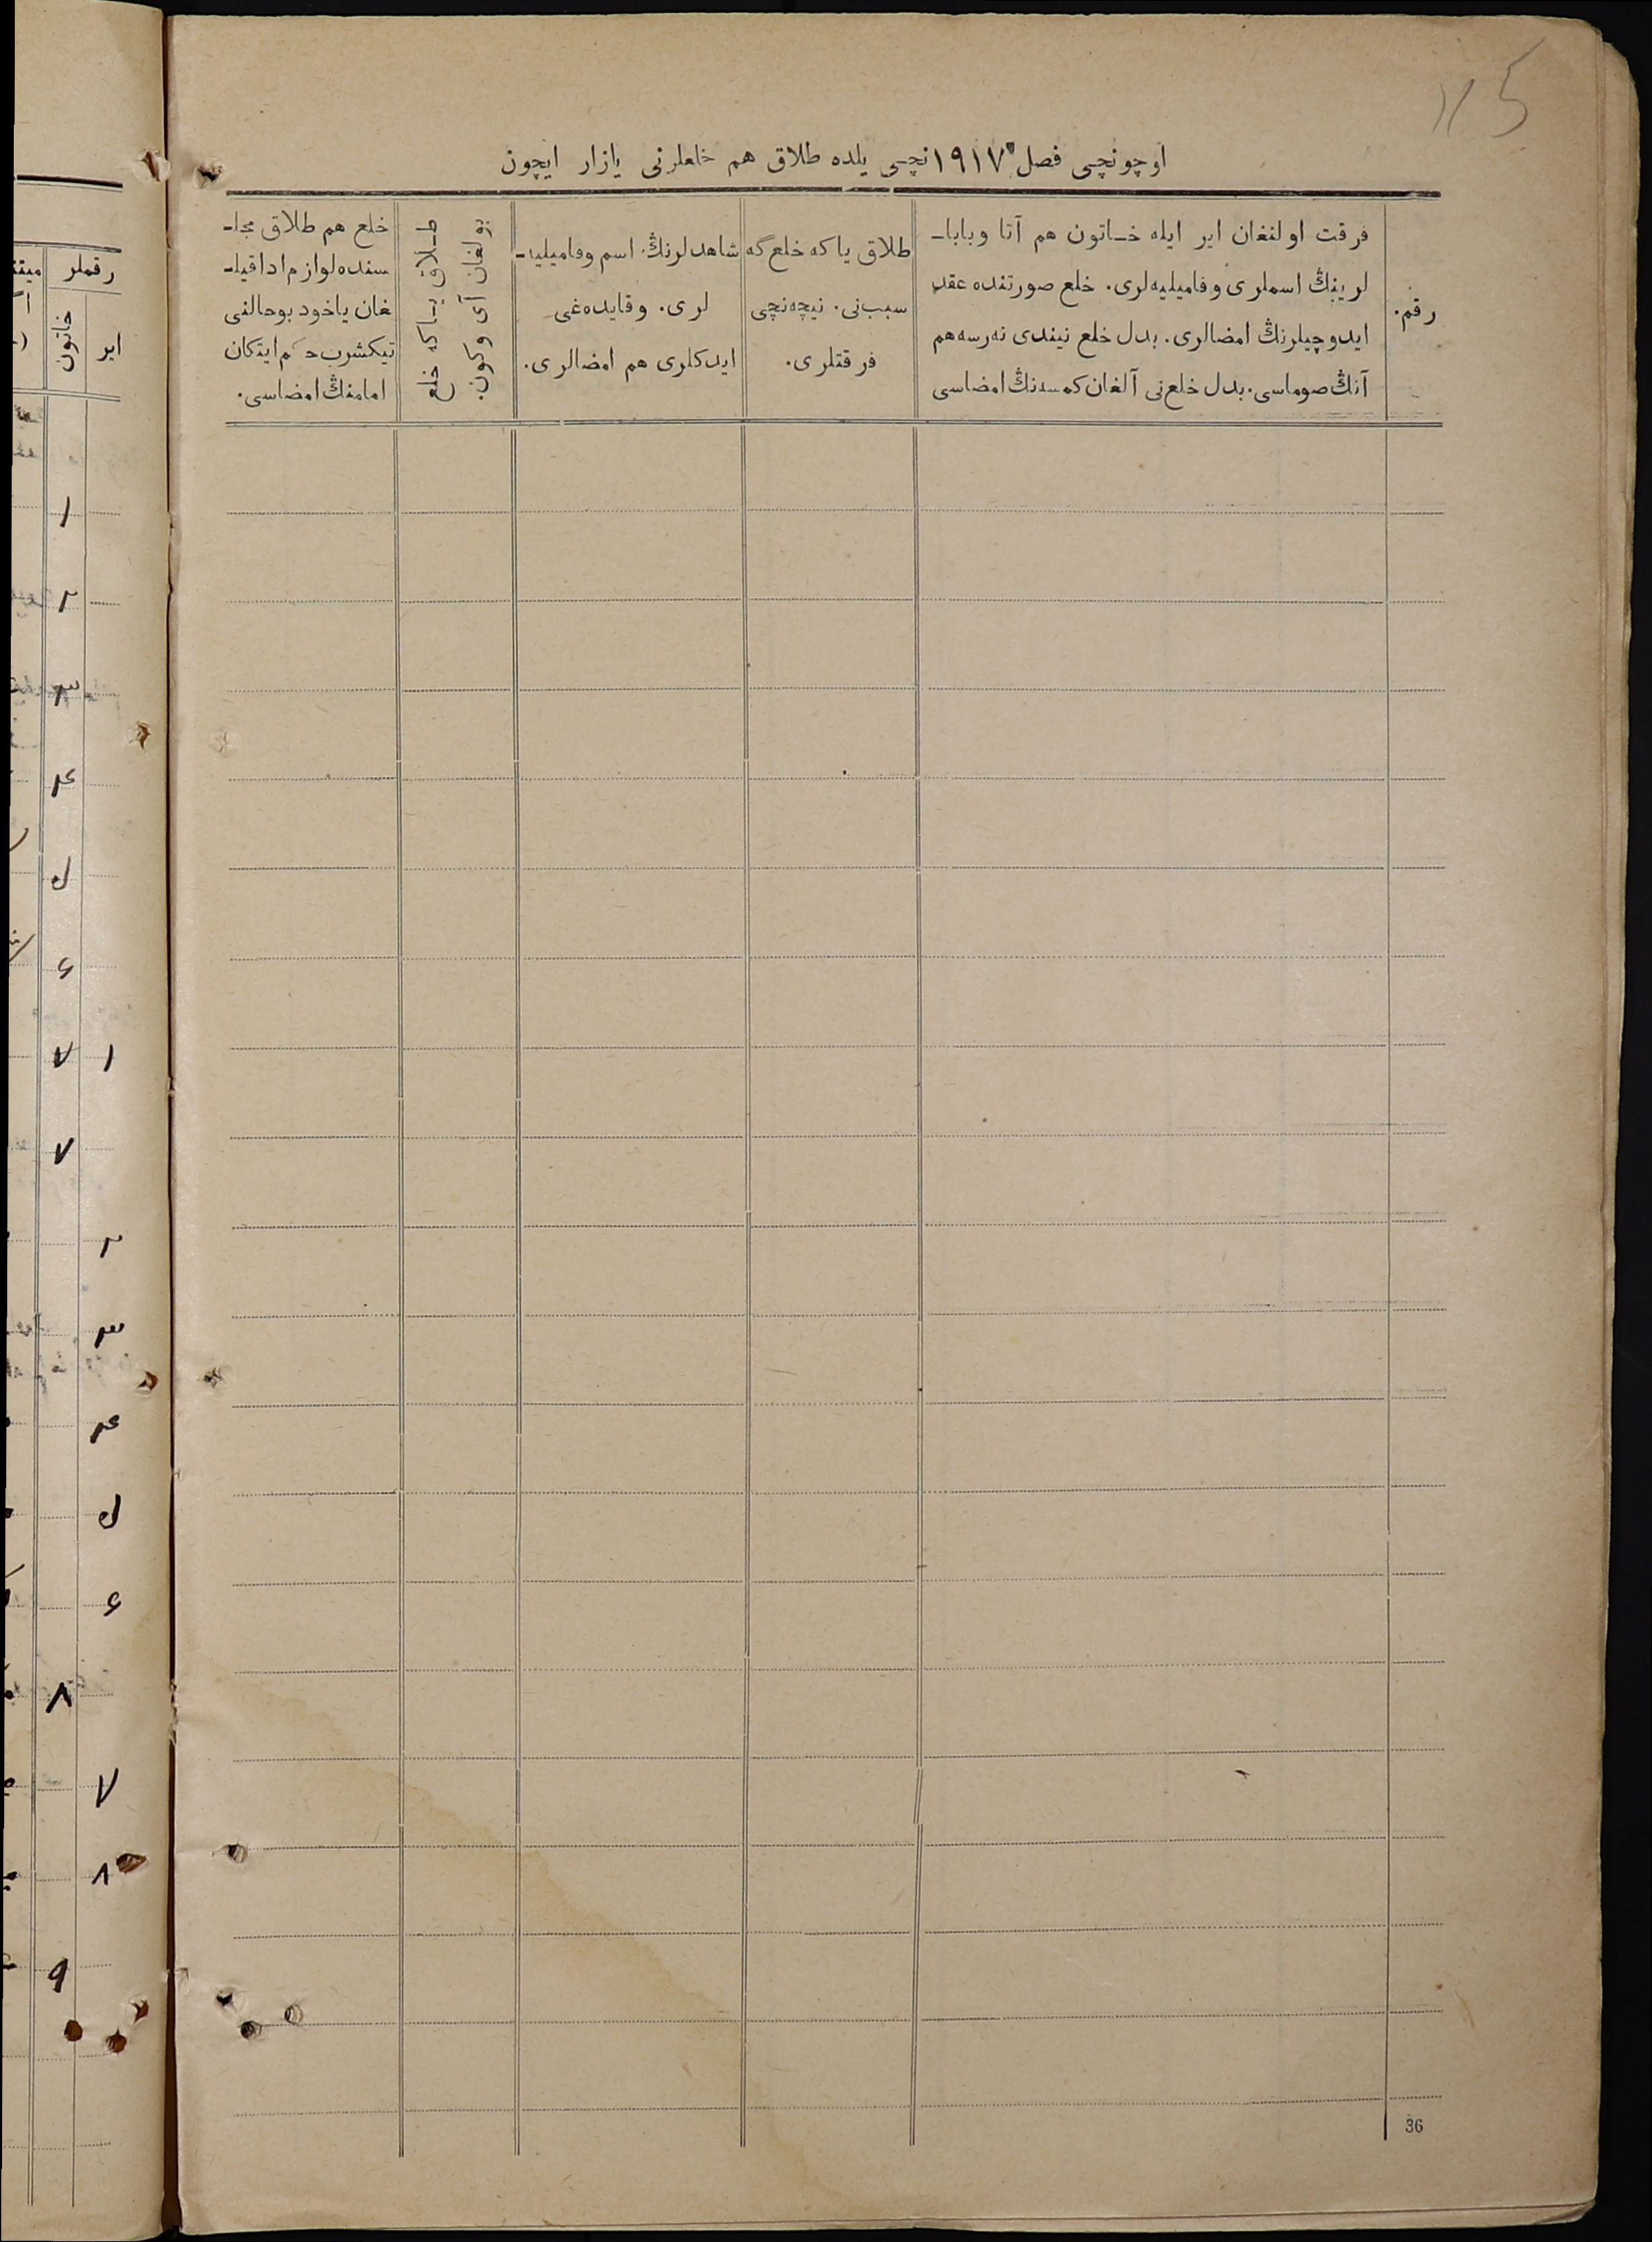 115
اوچونچی فصل ١٩١٧ نچی یلده طلاق هم خلعلرنی یازار ایچون
رقم.
فرقت اولنغان ایر ایله خـاتون هم آتا وبابا-
لرینڭ اسملری وفامیلیه‌لری. خلع صورتنده عقد
ایدوچیلرنڭ امضالری. بدل خلع نیندی نه‌رسه‌هم
آنڭ صوماسی. بدل خلع‌نی آلغان کمسه‌نڭ امضاسی
طلاق یا که خلع گه
سبب‌نی. نیچه‌نچی
فرقتلری.
شاهدلرنڭ اسم وفامیلیه-
لری. وقایده‌غی
ایدکلری هم امضالری.
طـلاق یـاکه خلع
بولغان آی وکون.
خلع هم طلاق مجلـ-
سنده‌لوازم‌اداقیلـ-
غان یاخود بوحالنی
تیکشرب حکم ایتکان
امامنڭ امضاسی.
36
رقملر
ایر
خاتون
١
٢
٣
۴
۶
١ ٧
٧
٢
٣
۴
۶
٨
٧
٨
٩